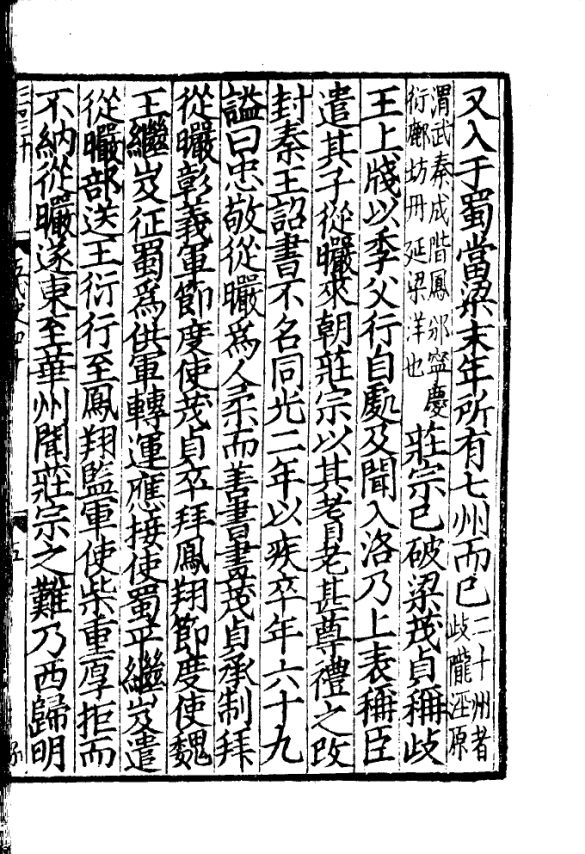 又入于蜀當梁末年所有七州而已二十州者歧隴涇原
渭武秦成階鳳邠寧慶衍鄜坊丹延梁洋也莊宗已破梁茂貞稱歧
王上牋以季父行自處及聞入洛乃上表稱臣
遣其子從曮來朝莊宗以其耆老甚尊禮之改
封秦王詔書不名同光二年以疾卒年六十九
謚曰忠敬從曮爲人柔而善書畫茂貞承制拜
從曮彰義軍節度使茂貞卒拜鳳翔節度使魏
王繼岌征蜀爲供軍轉運應接使蜀平繼岌遣
從曮部送王衍行至鳳翔監軍使柴重厚拒而
不納從曮遂東至華州聞莊宗之難乃西歸明